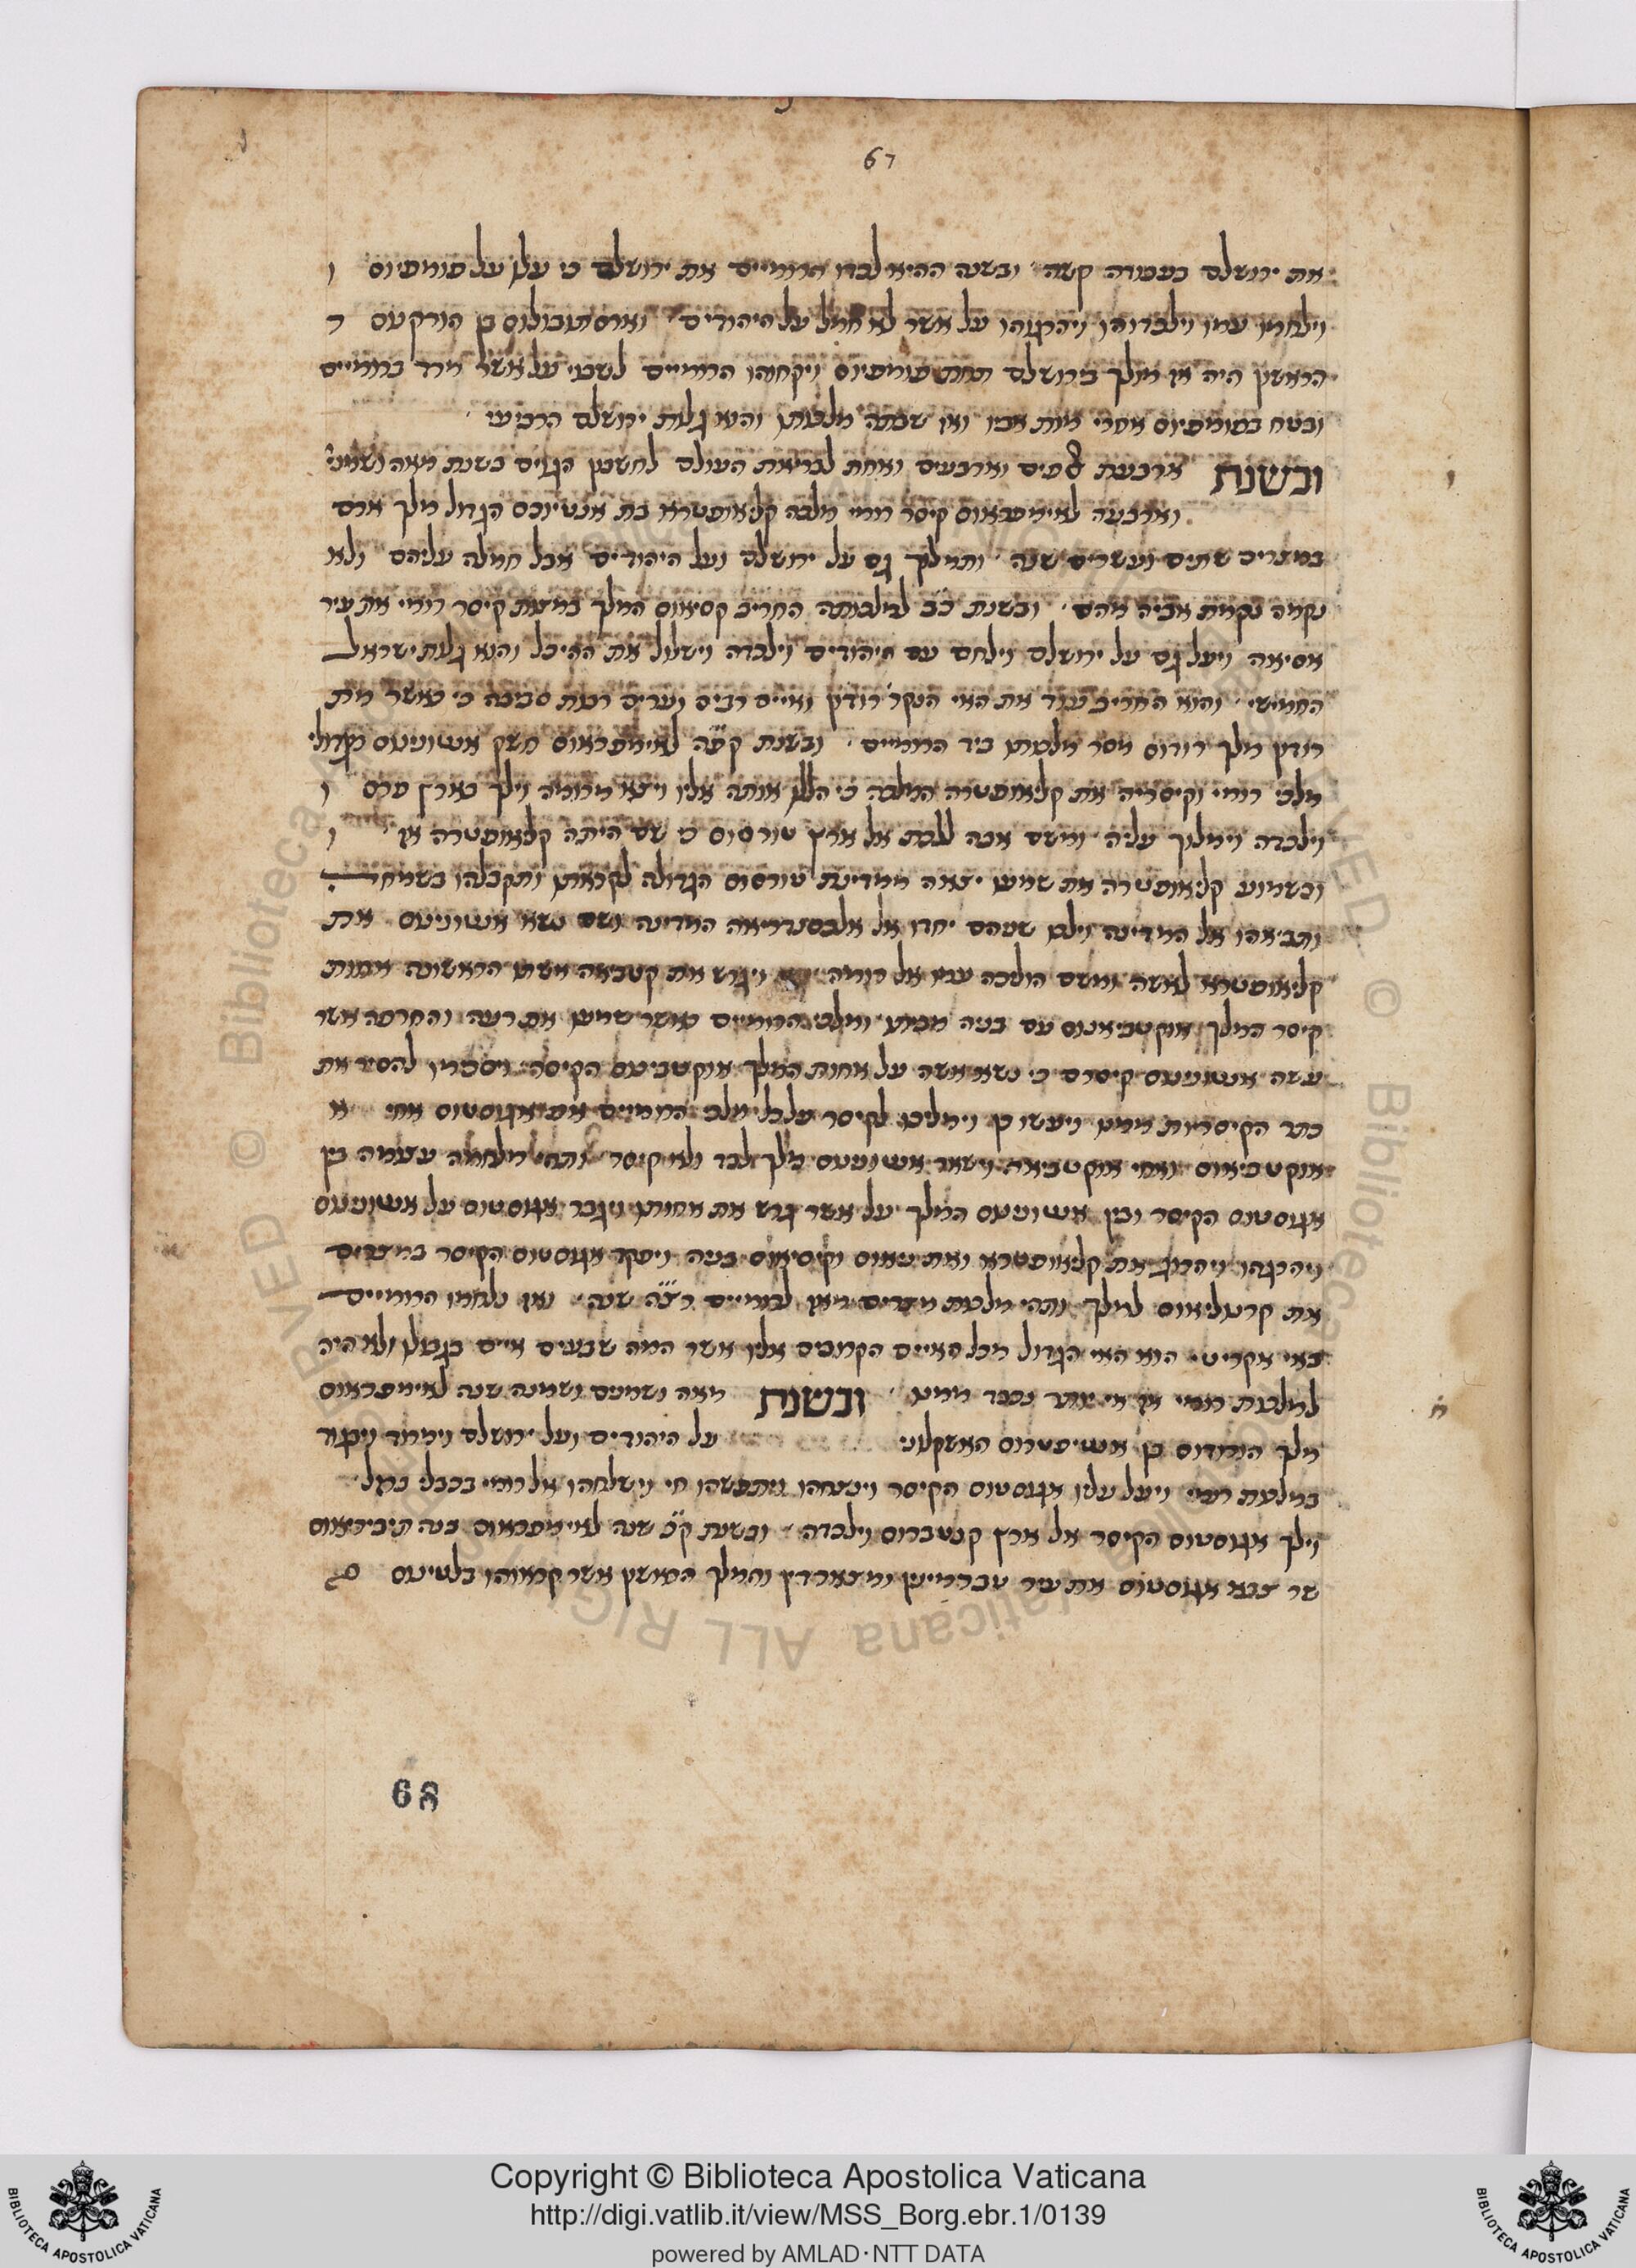 67
את ירושלם בעבודה קשה ובשנה ההיא לכדו הרומיים את ירושלם כי עלו על פומפיוס ו
וילחמו עמו וילכדוהו ויהרגוהו על אשר לא חמל על היהודים וארסתובולוס בן הורקנוס ר
הראשון היה אז מולך בירושלם תחת פומפיוס ויקחוהו הרומיים לשבי על אשר מרד ברומיים
ובטח בפומפיוס אחרי מות אביו ואז שבתה מלכותו והיא גלות ירושלם הרביעי
ובשנת ארבעת אלפים וארבעים ואחת לבריאת העולם לחשבון הגוים בשנת מאה ושמני
וארבעה קיסר רומי מלכה קליאופטרא בת אנטיוכס הגדול מלך ארם
במצרים שתים ועשרים שנה ותמלוך גם על ירושלם ועל היהודים אבל חמלה עליהם ולא
נקמה נקמת אביה מהם ובשנת כב למלכותה החריב קסיאוס המלך במצות קיסר רומי את עיר
אסיאה ויעל גם על ירושלם וילחם עם היהודים וילכדה וישלול את ההיכל והיא גלות ישראל
החמישי והוא החריב עוד את האי הנקר רודץ ואיים רבים וערים רבות סביבה כי כאשר מת
רודץ מלך רודוס מסר מלכותו ביד הרומיים ובשנת קפה חשק אנטוניוס
מלכי רומי וקיסריה את קליאופטרה המלכה כי הלל אותה אליו ויצא מרומה וילך בארץ פרס ו
וילכדה וימלוך עליה ומשם אבה ללכת אל ארץ טורסוס כי שם היתה קליאופטרה אז ו
וכשמוע קליאופטרה את שמעו יצאה ממדינת טורסוס הגדולה לקראתו ותקבלהו בשמחה
ותביאהו אל המדינה וילכו שניהם יחדו אל אלכסנדריאה המדינה ושם נשא אנטוניוס את
קליאופטרא לאשה ומשם הוליכה עמו אל רומה ויגרש את קטביאה אשתו הראשונה אחות
קיסר המלך אוקטביאנוס עם בניה מביתו ומלכי הרומיים כאשר שמעו את רעה והחרפה אשר
עשה אנטוניוס קיסרם כי נשא אשה על אחות המלך אוקטבינוס הקיסר ויסכימו להסיר את
כתר הקיסרות ממנו ויעשו כן וימליכו לקיסר על כל מלכי הרומיים את אגוסטוס אחי א
אוקטביאוס ואחי אוקטביאה וישאר אנטוניוס מלך לבד ולא קיסר ותהי מלחמה עצומה בין
אגוסטוס הקיסר ובין אנטוניוס המלך על אשר גרש את אחותו ויגבר אגוסטוס על אנטוניוס
ויהרגהו ויהרוג את קליאופטרא ואת בניה ויפקד אגוסטוס הקיסר במצרים
את קרנליאוס למלך ותהי מלכות מצרים מאז לרומיים שנה ואז נלחמו הרומיים
באי אקריטי הוא האי הגדול מכל האיים הקרובים אליו אשר המה שבעים איים בגבולו ולא היה
למלכות רומי אז אי יותר נכבד ממנו ובשנת מאה ושמנים ושמנה שנה
מלך הורודוס בן אנטיפטרוס האשקלוני על היהודים ועל ירושלם וימרוד ויבגוד
במלכות רומי ויעל עליו אגוסטוס הקיסר וינצחהו ויתפשהו חי וישלחהו אל רומי בכבלי ברזל
וילך אגוסטוס הקיסר אל ארץ קנטברוס וילכדה ובשנת שנה בנה טיביריאוס
שר צבא אגוסטוס את עיר והמלך אשר קראוהו
68
Copyright © Biblioteca Apostolica Vaticana
http://digi.vatlib.it/view/MSS_Borg.ebr.1/0139
powered by AMLAD·NTT DATA